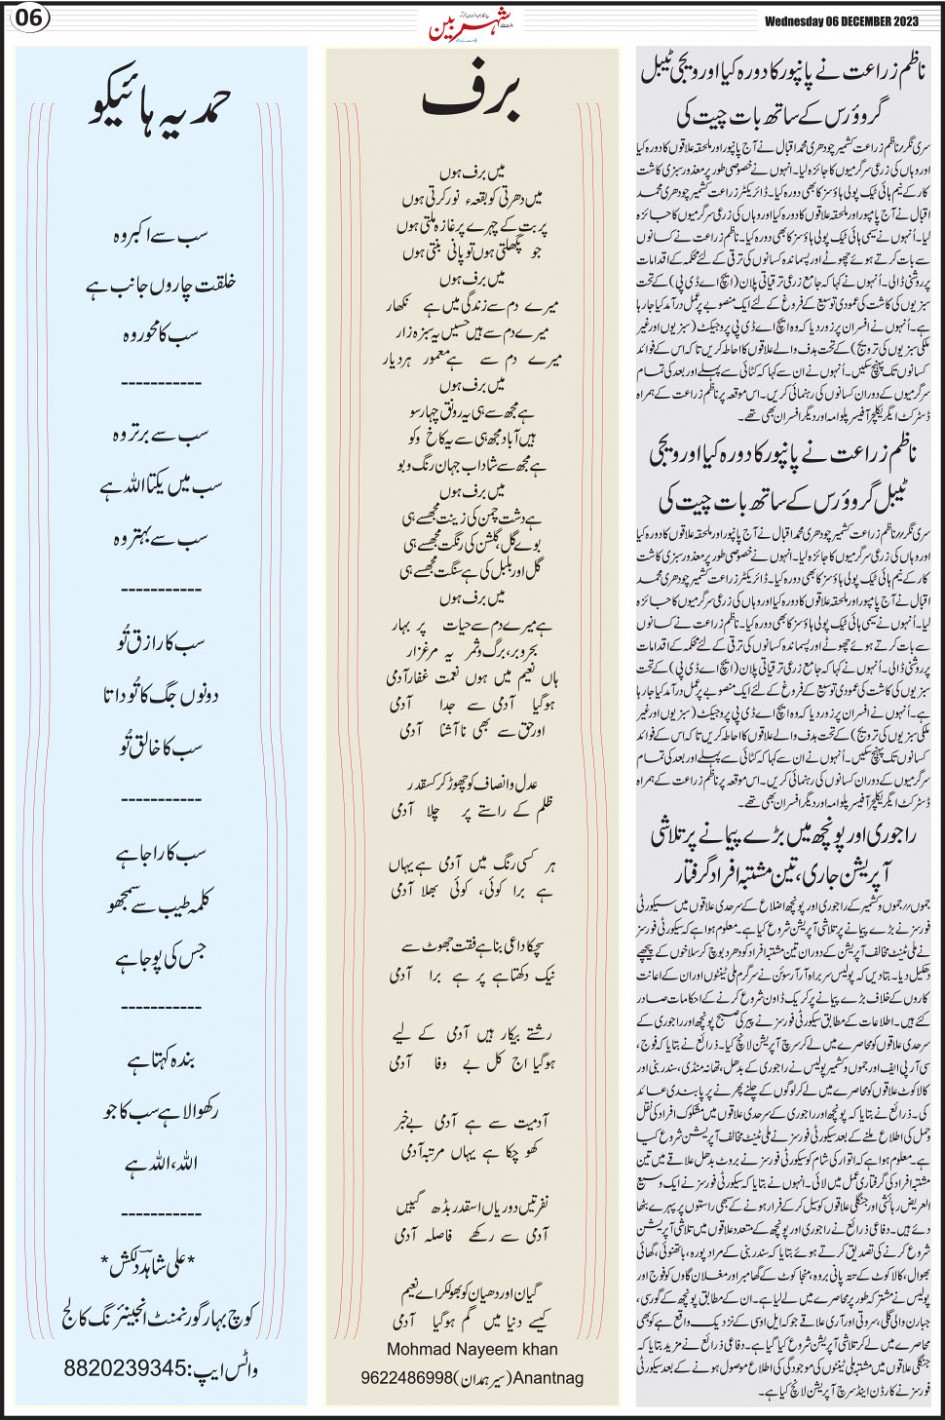 06
شہربین
Wednesday 06 DECEMBER 2023
ناظم زراعت نے پانپور کا دورہ کیا اور ویجی ٹیبل
گروؤرس کے ساتھ بات چیت کی
سری نگر/ناظم زراعت کشمیر چودھری محمد اقبال نے آج پانپور اور ملحقہ علاقوں کا دورہ کیا
اور وہاں کی زرعی سرگرمیوں کا جائزہ لیا۔ انہوں نے خصوصی طور پر معذور سبزی کاشت
کار کے نیم ہائی ٹیک پولی ہاؤسز کا بھی دورہ کیا۔ ڈائریکٹر زراعت کشمیر چودھری محمد
اقبال نے آج پامپور اور ملحقہ علاقوں کا دورہ کیا اور وہاں کی زرعی سرگرمیوں کا جائزہ
لیا۔ اُنہوں نے سیمی ہائی ٹیک پولی ہاؤسز کا بھی دورہ کیا۔ ناظم زراعت نے کسانوں
سے بات کرتے ہوئے چھوٹے اور پسماندہ کسانوں کی ترقی کے لئے محکمہ کے اقدامات
پر روشنی ڈالی۔ اُنہوں نے کہا کہ جامع زرعی ترقیاتی پلان (ایچ اے ڈی پی) کے تحت
سبزیوں کی کاشت کی عمودی توسیع کے فروغ کے لئے ایک منصوبے پر عمل درآمد کیا جارہا
ہے۔ اُنہوں نے افسران پر زور دیا کہ وہ ایچ اے ڈی پی پروجیکٹ (سبزیوں اور غیر
ملکی سبزیوں کی ترویج) کے تحت ہدف والے علاقوں کا احاطہ کریں تاکہ اس کے فوائد
کسانوں تک پہنچ سکیں۔ اُنہوں نے ان سے کہا کہ کٹائی سے پہلے اور بعد کی تمام
سرگرمیوں کے دوران کسانوں کی رہنمائی کریں۔ اس موقعہ پر ناظم زراعت کے ہمراہ
ڈسٹرکٹ ایگریکلچر آفیسر پلوامہ اور دیگر افسران بھی تھے۔
ناظم زراعت نے پانپور کا دورہ کیا اور ویجی
ٹیبل گروؤرس کے ساتھ بات چیت کی
سری نگر//ناظم زراعت کشمیر چودھری محمد اقبال نے آج پانپور اور ملحقہ علاقوں کا دورہ کیا
اور وہاں کی زرعی سرگرمیوں کا جائزہ لیا۔ انہوں نے خصوصی طور پر معذور سبزی کاشت
کار کے نیم ہائی ٹیک پولی ہاؤسز کا بھی دورہ کیا۔ ڈائریکٹر زراعت کشمیر چودھری محمد
اقبال نے آج پامپور اور ملحقہ علاقوں کا دورہ کیا اور وہاں کی زرعی سرگرمیوں کا جائزہ
لیا۔ اُنہوں نے سیمی ہائی ٹیک پولی ہاؤسز کا بھی دورہ کیا۔ ناظم زراعت نے کسانوں
سے بات کرتے ہوئے چھوٹے اور پسماندہ کسانوں کی ترقی کے لئے محکمہ کے اقدامات
پر روشنی ڈالی۔ اُنہوں نے کہا کہ جامع زرعی ترقیاتی پلان (ایچ اے ڈی پی) کے تحت
سبزیوں کی کاشت کی عمودی توسیع کے فروغ کے لئے ایک منصوبے پر عمل درآمد کیا جارہا
ہے۔ اُنہوں نے افسران پر زور دیا کہ وہ ایچ اے ڈی پی پروجیکٹ (سبزیوں اور غیر
ملکی سبزیوں کی ترویج) کے تحت ہدف والے علاقوں کا احاطہ کریں تاکہ اس کے فوائد
کسانوں تک پہنچ سکیں۔ اُنہوں نے ان سے کہا کہ کٹائی سے پہلے اور بعد کی تمام
سرگرمیوں کے دوران کسانوں کی رہنمائی کریں۔ اس موقعہ پر ناظم زراعت کے ہمراہ
ڈسٹرکٹ ایگریکلچر آفیسر پلوامہ اور دیگر افسران بھی تھے۔
راجوری اور پونچھ میں بڑے پیمانے پر تلاشی
آپریشن جاری، تین مشتبہ افراد گرفتار
جموں//جموں وکشمیر کے راجوری اور پونچھ اضلاع کے سرحدی علاقوں میں سیکورٹی
فورسز نے بڑے پیمانے پر تلاشی آپریشن شروع کیا ہے۔ معلوم ہوا ہے کہ سیکورٹی فورسز
نے ملی ٹینٹ مخالف آپریشن کے دوران تین مشتبہ افراد کو دھر دبوچ کر سلاخوں کے پیچھے
دھکیل دیا۔ بتادیں کہ پولیس سربراہ آر آر سوئن نے سرگرم ملی ٹینٹوں اور ان کے اعانت
کاروں کے خلاف بڑے پیمانے پر کریک ڈاون شروع کرنے کے احکامات صادر
کئے ہیں۔ اطلاعات کے مطابق سیکورٹی فورسز نے پیر کی صبح پونچھ اور راجوری کے
سرحدی علاقوں کو محاصرے میں لے کر سرچ آپریشن لانچ کیا۔ ذرائع نے بتایا کہ فوج،
سی آر پی ایف اور جموں وکشمیر پولیس نے راجوری کے بدھل، تھانہ منڈی، سندر بنی اور
کالاکوٹ علاقوں کو محاصرے میں لے کر لوگوں کے چلنے پھرنے پر پابندی عائد
کی۔ ذرائع نے بتایا کہ پونچھ اور راجوری کے سرحدی علاقوں میں مشکوک افراد کی نقل
وحمل کی اطلاع ملنے کے بعد سیکورٹی فورسز نے ملی ٹینٹ مخالف آپریشن شروع کیا
ہے۔ معلوم ہوا ہے کہ اتوار کی شام کو سیکورٹی فورسز نے بروٹ بدھل علاقے میں تین
مشتبہ افراد کی گرفتاری عمل میں لائی۔ انہوں نے بتایا کہ سیکورٹی فورسز نے ایک وسیع
العریض رہائشی اور جنگلی علاقوں کو سیل کر کے فرار ہونے کے سبھی راستوں پر پہرے بٹھا
دئے ہیں۔ دفاعی ذرائع نے راجوری اور پونچھ کے متعدد علاقوں میں تلاشی آپریشن
شروع کرنے کی تصدیق کرتے ہوئے بتایا کہ سندر بنی کے مراد پورہ، باتھنوئی، گھائی
بھوال، کالاکوٹ کے تتہ پانی بروہ، منجاکوٹ کے گھامبر اور مغلاں گاوں کو فوج اور
پولیس نے مشترکہ طور پر محاصرے میں لے لیا ہے۔ ان کے مطابق پونچھ کے گورسی،
جباراں والی گلی، سروٹی اور آری علاقے جو کہ ایل او سی کے نزدیک واقع ہے کو بھی
محاصرے میں لے کر تلاشی آپریشن شروع کیا گیا ہے۔ دفاعی ذرائع نے مزید بتایا کہ
جنگلی علاقوں میں مشتبہ ملی ٹینٹوں کی موجودگی کی اطلاع موصول ہونے کے بعد سیکورٹی
فورسز نے کارڈن اینڈ سرچ آپریشن لانچ کیا ہے۔
برف
میں برف ہوں
میں دھرتی کو بقعہء نور کرتی ہوں
پربت کے چہرے پر غازہ ملتی ہوں
جو پگھلتی ہوں تو پانی بنتی ہوں
میں برف ہوں
میرے دم سے زندگی میں ہے نکھار
میرے دم سے ہیں حسیں یہ سبزہ زار
میرے دم سے ہے معمور ہر دیار
میں برف ہوں
ہے مجھ سے ہی یہ رونق چہار سو
ہیں آباد مجھ ہی سے یہ کاخ وکو
ہے مجھ سے شاداب جہان رنگ و بو
میں برف ہوں
ہے دشت چمن کی زینت مجھسے ہی
بوے گل، گلشن کی رنگت مجھسے ہی
گل اور بلبل کی ہے سنگت مجھسے ہی
میں برف ہوں
ہے میرے دم سے حیات پر بہار
بحروبر، برگ و ثمر یہ مرغزار
ہاں نعیم میں ہوں نعمت غفار آدمی
ہوگیا آدمی سے جدا آدمی
اور حق سے بھی نا آشنا آدمی
عدل و انصاف کو چھوڑ کر کسقدر
ظلم کے راستے پر چلا آدمی
ہر کسی رنگ میں آدمی ہے یہاں
ہے برا کوئی، کوئی بھلا آدمی
سچ کا داعی بنا ہے فقت جھوٹ سے
نیک دکھتا ہے پر ہے برا آدمی
رشتے بیکار ہیں آدمی کے لیے
ہوگیا اج کل بے وفا آدمی
آدمیت سے ہے آدمی بے خبر
کھو چکا ہے یہاں مرتبہ آدمی
نفرتیں دوریاں اسقدر بڈھ گییں
آدمی سے رکھے فاصلہ آدمی
گیان اور دھیان کو بھولکر اے نعیم
کیسے دنیا میں گم ہوگیا آدمی
Mohmad Nayeem khan
9622486998(سیر ہمدان)Anantnag
حمدیہ ہائیکو
سب سے اکبر وہ
خلقت چاروں جانب ہے
سب کا محور وہ
-----------
سب سے برتر وہ
سب میں یکتا اللہ ہے
سب سے بہتر وہ
-----------
سب کا رازق تُو
دونوں جگ کا تُو داتا
سب کا خالق تُو
-----------
سب کا راجا ہے
کلمہ طیب سے سمجھو
جس کی پوجا ہے
-----------
بندہ کہتا ہے
رکھوالا ہے سب کا جو
اللہ، اللہ ہے
-----------
*علی شاہد دلکش*
کوچ بہار گورنمنٹ انجینئرنگ کالج
واٹس ایپ: 8820239345